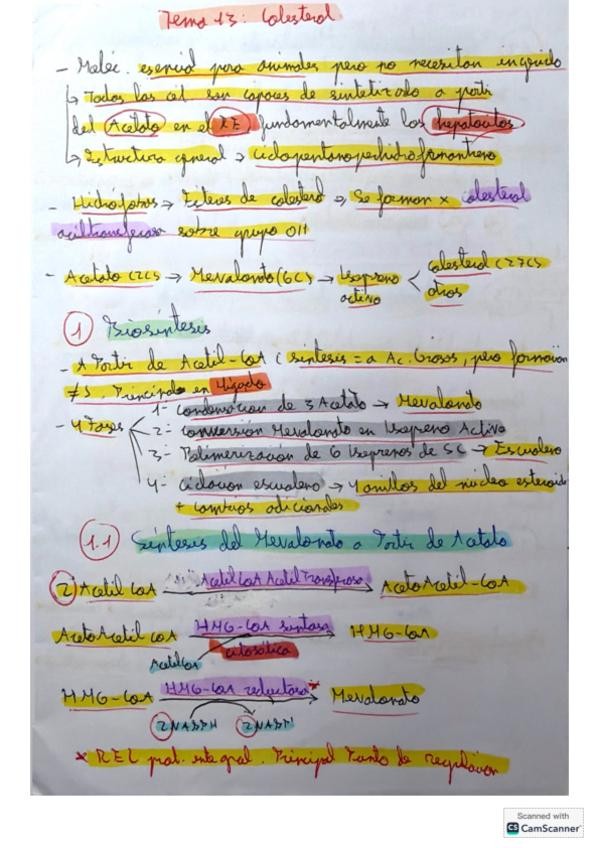 Tema 13: Colesterol
- Moléc. esencial para animales pero no necesitan ingerirlo
↳ Todas las cél son capaces de sintetizarlo a partir
del Acetato en el RE, fundamentalmente los hepatocitos
↳ Estructura general → ciclopentanoperhidrofenantreno
- Hidrófobos → Ésteres de colesterol → Se forman x colesterol
aciltransferasa sobre grupo OH
- Acetato (2C) → Mevalonato (6C) → Isopreno activo < colesterol (27C)
otros
1 Biosíntesis
- A Partir de Acetil-CoA ( síntesis = a Ac. Grasos, pero formación
≠s. Principal en Hígado
- 4 Fases
1- Condensación de 3 Acetato → Mevalonato
2- Conversión Mevalonato en Isopreno Activo
3- Polimerización de 6 Isoprenos de 5C → Escualeno
4- Ciclación escualeno → 4 anillos del núcleo esteroid
+ cambios adicionales
1.1 Síntesis del Mevalonato a Partir de Acetato
2 Acetil CoA Acetil CoA Acetil Transferasa → AcetoAcetil-CoA
AcetoAcetil CoA HMG-CoA sintasa → HMG-CoA
Acetil CoA citosólica
HMG-CoA HMG-CoA reductasa * → Mevalonato
2 NADPH 2 NADP+
* REL prot. integral. Principal Punto de regulación
Scanned with
CS CamScanner